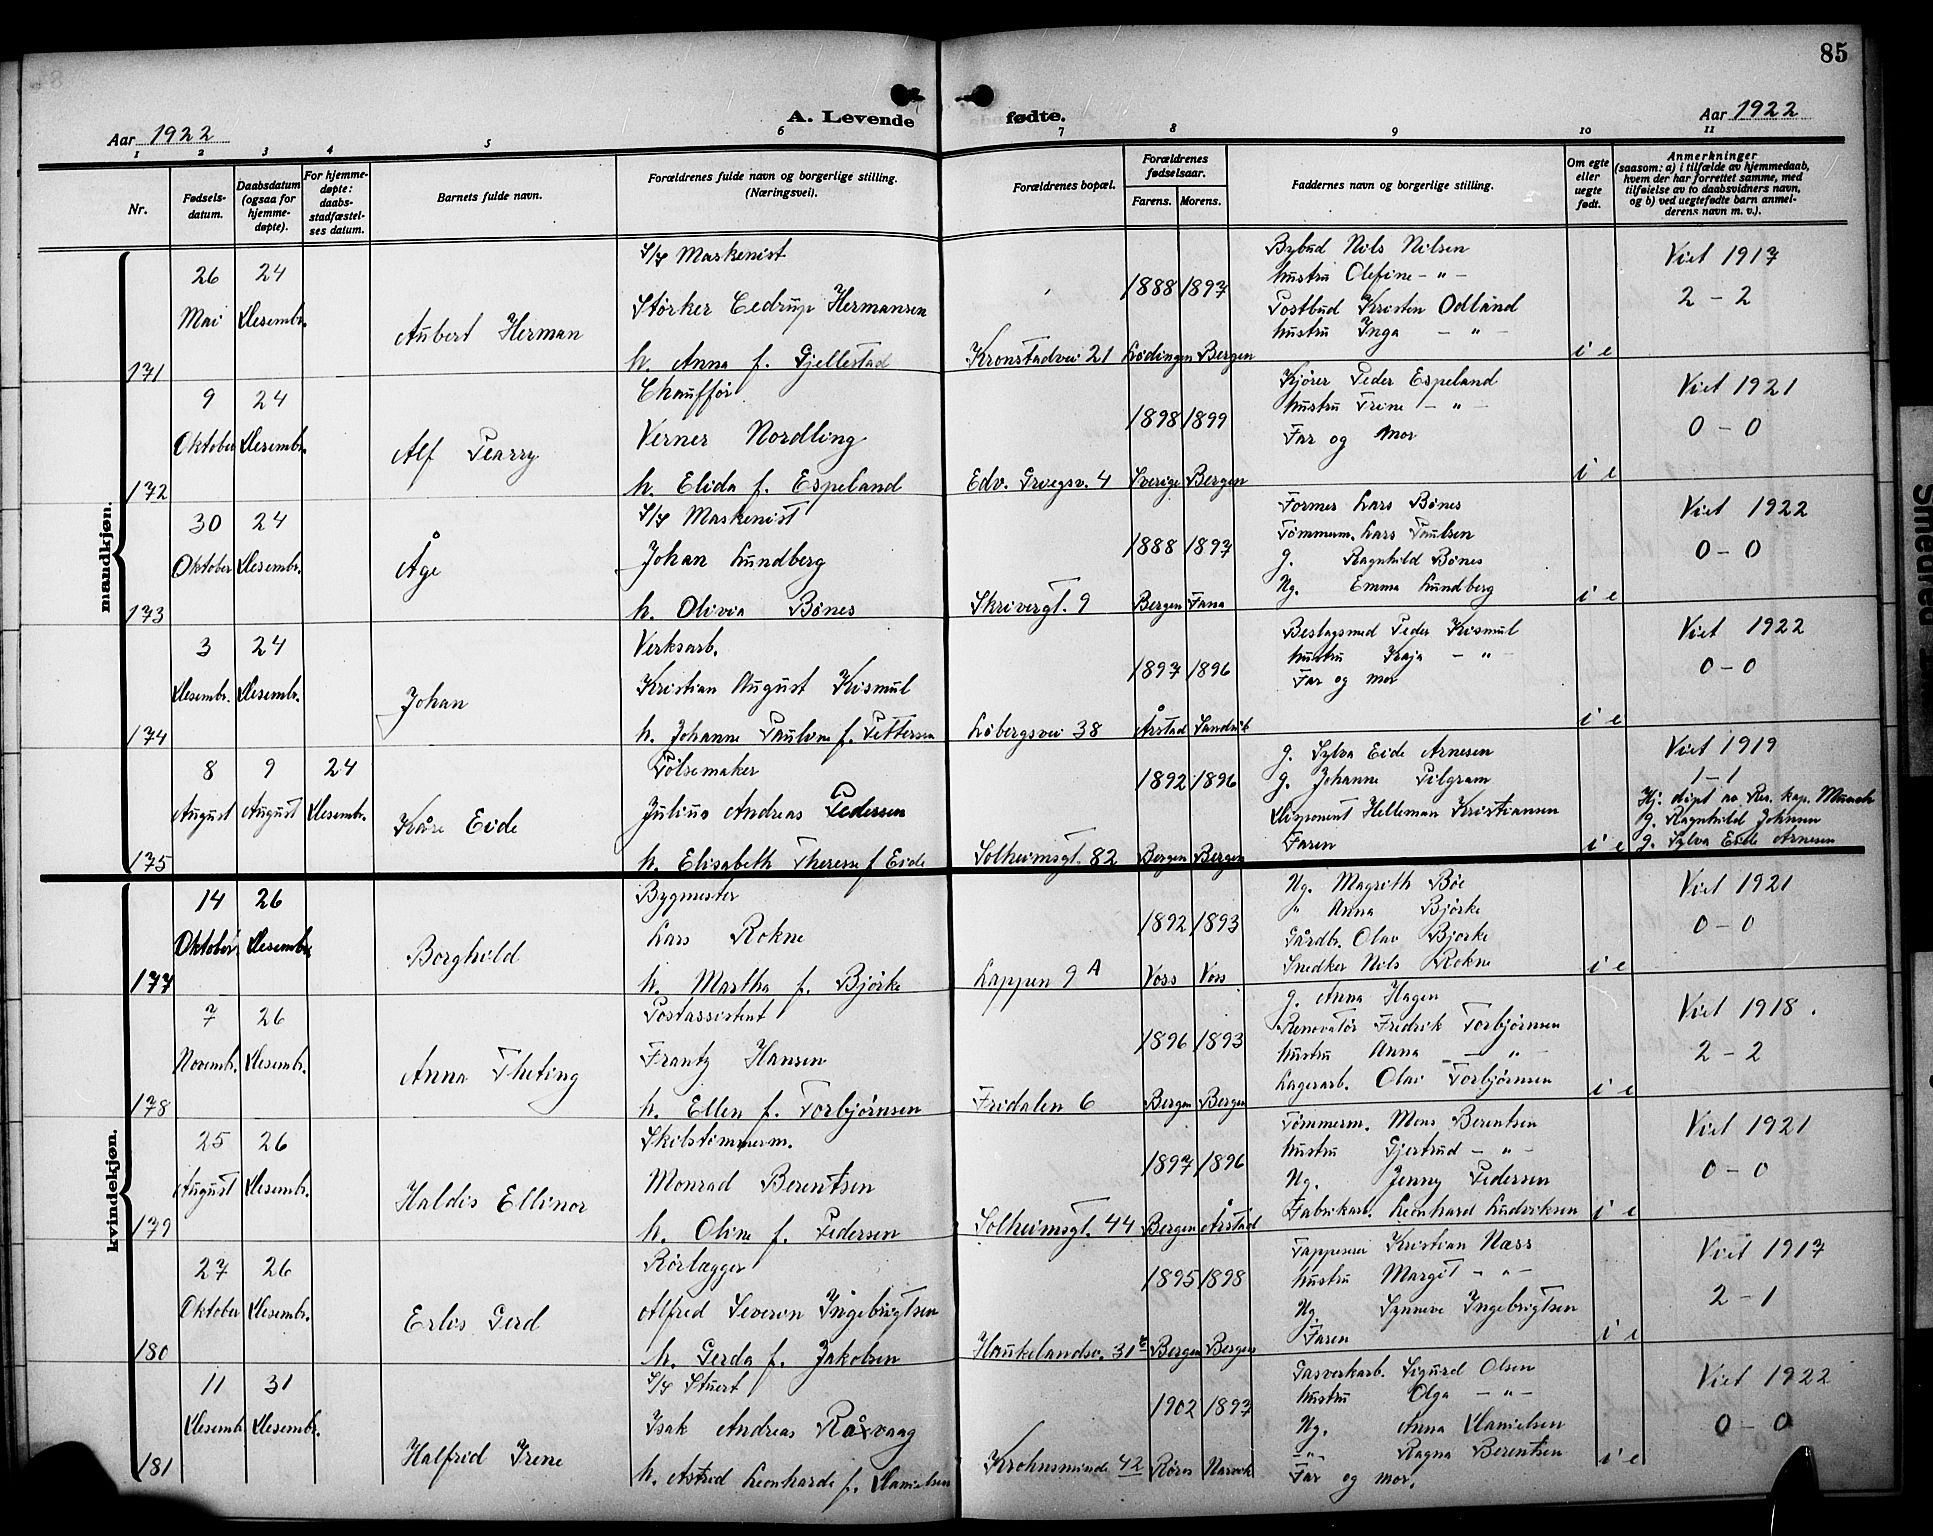 85
Aar 1922 A. Levende fødte. Aar 1922
1 2 3 4 5 6 7 8 9 10 11
Nr. Fødselsdatum. Daabsdatum (ogsaa for hjemmedøpte). For hjemmedøpte: daabsstadfæstelses datum. Barnets fulde navn. Forældrenes fulde navn og borgerlige stilling. (Næringsvei). Forældrenes bopæl. Forældrenes fødselsaar. Farens. Morens. Faddernes navn og borgerlige stilling. Om egte eller uegte født. Anmerkninger (saasom: a) i tilfælde av hjemmedaab, hvem der har forrettet samme, med tilføielse av to daabsvidners navn, og b) ved uegtefødte barn anmelderens navn m. v.).
mandkjøn.
S/S Maskenist Bybud Nils Nilsen Viet 1917
26 24 1888 1897 hustru Olefine – " –
Mai Desembr. Størker Eedrup Hermansen Postbud Kristen Odland 2 – 2
Aubert Herman hustru Inga – " –
171 h. Anna f. Gjellestad Kronstadvei 21 Lødingen Bergen i e
Chauffør Kjører Peder Espeland Viet 1921
9 24 1898 1899 hustru Trine – " –
Oktober Desembr. Alf Pearry Verner Nordling Far og Mor 0 – 0
172 h. Elida f. Espeland Edv. Griegsv. 4 Sverige Bergen i e
S/S Maskenist Former Lars Bønes Viet 1922
30 24 1888 1897 Tømmerm. Lars Paulsen
Oktober Desembr. Åge Johan Lundberg g. Ragnhild Bønes 0 – 0
173 h. Olivia Bønes Skrivergt. 9 Bergen Fana Ug. Emma Lundberg i e
Verksarb. Beslagsmed Peder Kismul Viet 1922
3 24 1897 1896 hustru Kaja – " –
Desembr. Desembr. Johan Kristian August Kismul Far og mor 0 – 0
174 h. Johanne Pauline f. Pettersen Løbergsvei 38 Årstad Sandvik i e
Pølsemaker g. Sylva Eide Arnesen Viet 1919
8 9 24 1892 1896 g. Johanne Pilgram 1 – 1
August August Desembr. Kåre Eide Julius Andreas Pedersen Disponent Helleman Kristiansen Hj. døpt av Res. kap. Munch
g. Ragnhild Johnsen
175 h. Elisabeth Therese f. Eide Solheimsgt. 82 Bergen Bergen Faren i e g. Sylva Eide Arnesen
kvindekjøn.
Bygmester Ug. Magrith Bøe Viet 1921
14 26 1892 1893 " Anna Bjørke
Oktober Desembr. Borghild Lars Rokne Gårdbr. Olav Bjørke 0 – 0
177 h. Martha f. Bjørke Lappen 9 A Voss Voss Snedker Nils Rokne i e
Postassistent g. Anna Hagen Viet 1918.
7 26 1896 1893 Renovatør Fredrik Torbjørnsen
Novembr. Desembr. Anna Theting Frantz Hansen hustru Anna – " – 2 – 2
178 h. Ellen f. Torbjørnsen Fridalen 6 Bergen Bergen Lagerarb. Olai Torbjørnsen i e
Skibstømmerm. Tømmerm. Mons Berentsen Viet 1921
25 26 1897 1896 hustru Gjertrud – " –
August Desembr. Haldis Ellinor Monrad Berentsen Ug. Jenny Pedersen 0 – 0
179 h. Oline f. Pedersen Solheimsgt. 44 Bergen Årstad Fabrikarb. Leonhard Ludviksen i e
Rørlægger Tappeseer Kristian Næss Viet 1917
27 26 1895 1898 hustru Margit – " –
Oktober Desembr. Erlis Gerd Alfred Severin Ingebrigtsen Ug. Synneve Ingebrigtsen 2 – 1
180 h. Gerda f. Jakobsen Haukelandsv. 31 b Bergen Bergen Faren i e
S/S Stuert Gasverkarb. Sigurd Olsen Viet 1922
11 31 1902 1897 hustru Olga – " –
Desembr. Desembr. Halfrid Irene Isak Andreas Råxvaag Ug. Anna Danielsen 0 – 0
– " – Ragna Berentsen
181 h. Astrid Leonharde f. Danielsen Krohnsminde 42 Røros Narvik Far og mor. i e